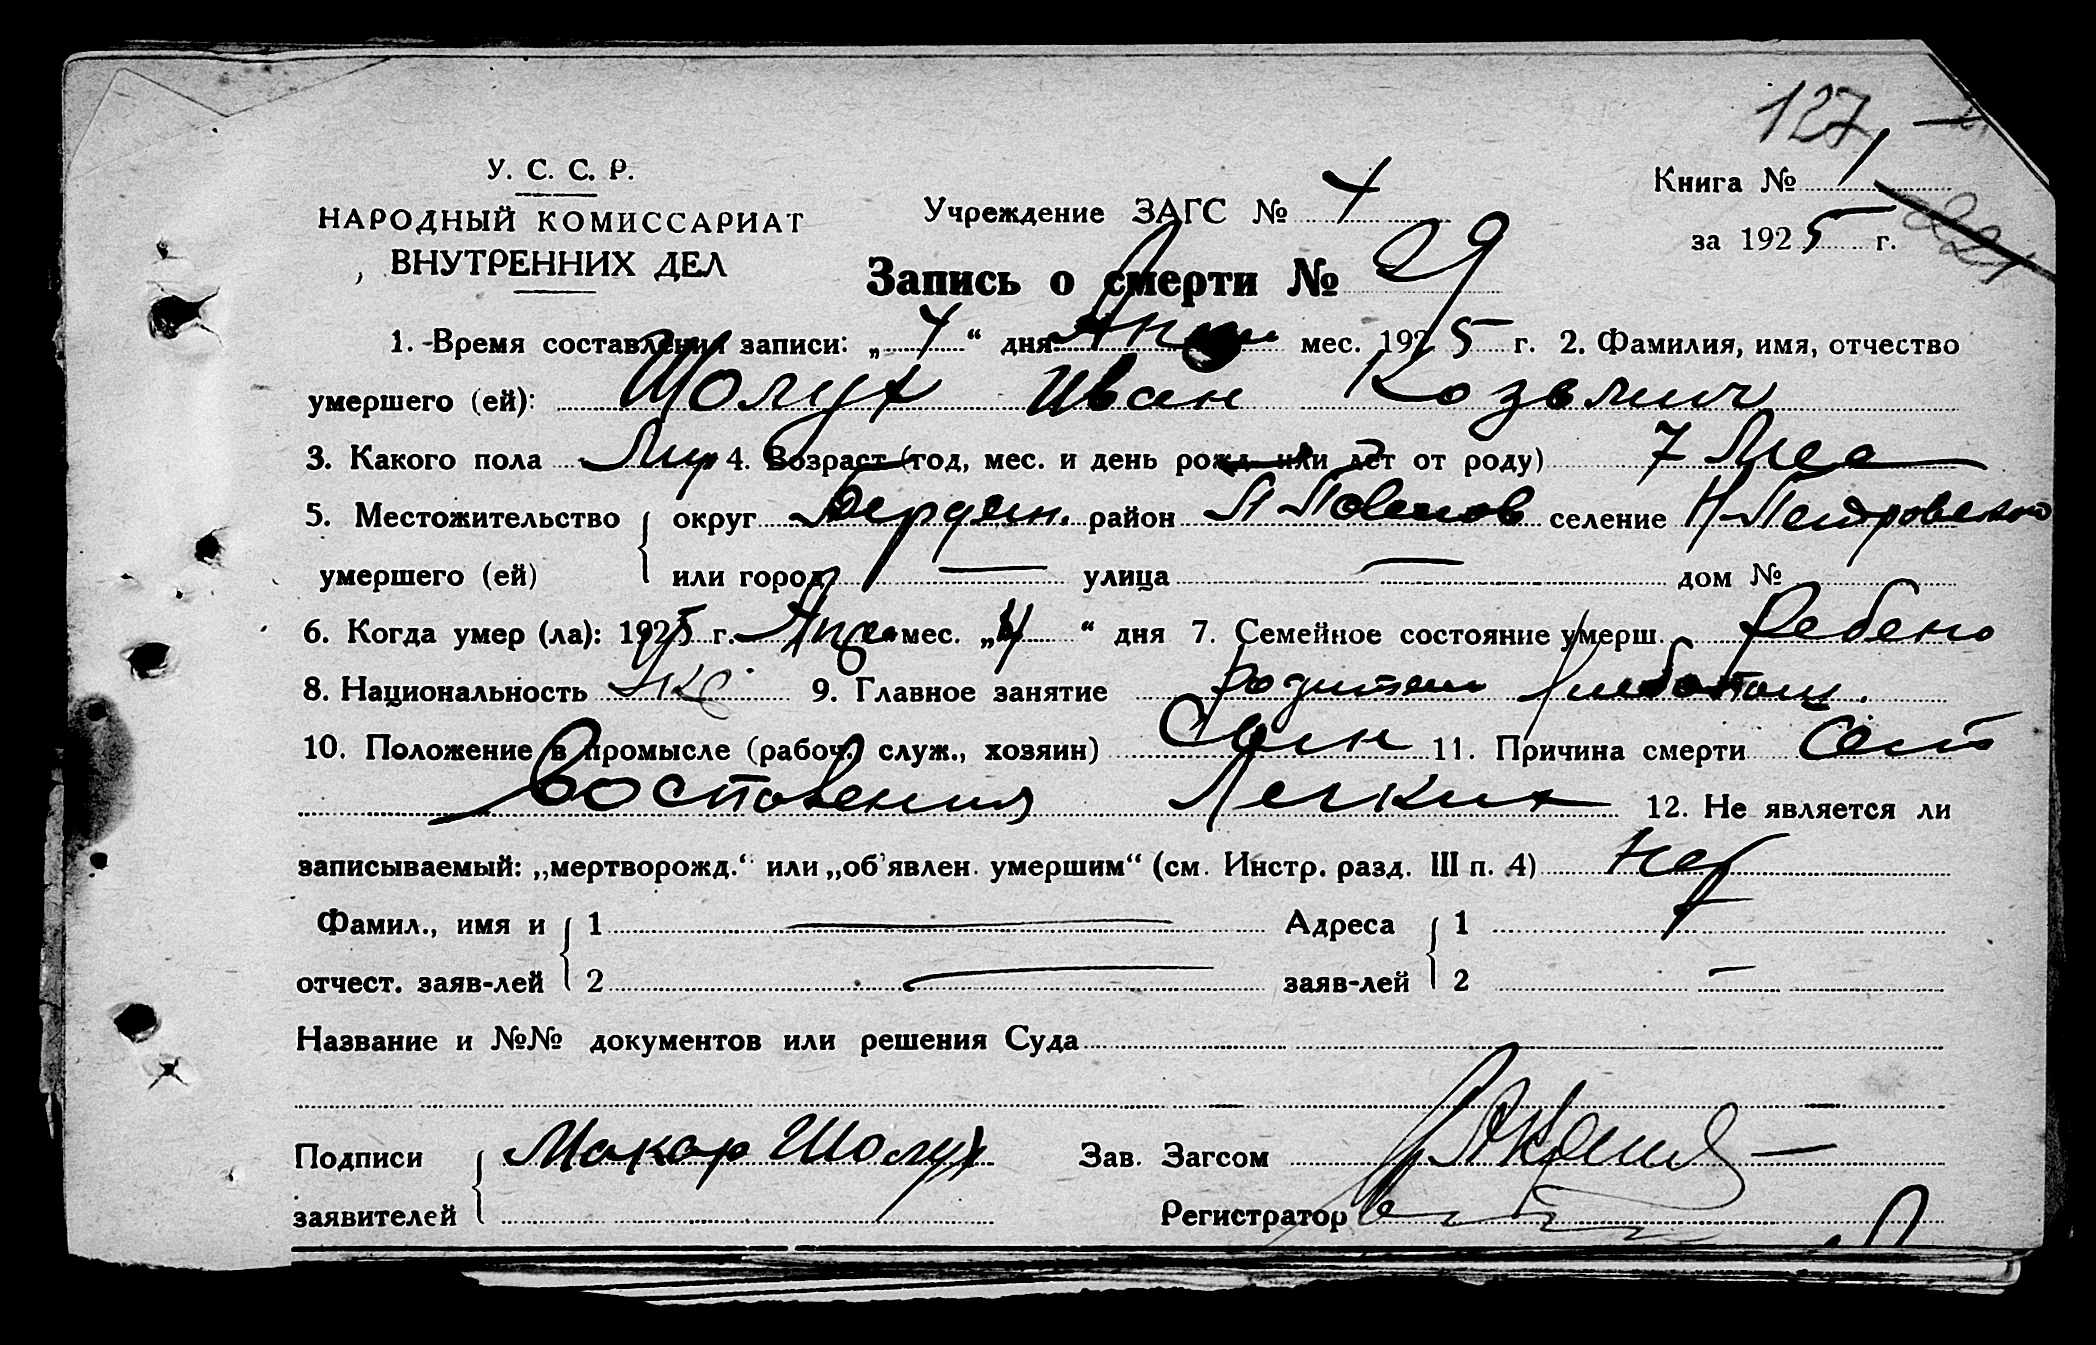 127
У. С. С. Р.
НАРОДНЫЙ КОМИССАРИАТ
ВНУТРЕННИХ ДЕЛ
Учреждение ЗАГС № 4
Книга № 1
за 1925 г.
221
Запись о смерти № 29
1. Время составления записи: „4“ дня мес. 1925 г. 2. Фамилия, имя, отчество
умершего (ей): Шолух Иван Козьмич
3. Какого пола Муж 4. Возраст (год, мес. и день рожд. или лет от роду) 7 Мес
5. Местожительство округ Бердян. район селение Н-Петровского
умершего (ей) или город — улица — дом №
6. Когда умер (ла): 1925 г. мес. „4“ дня 7. Семейное состояние умерш. Ребено
8. Национальность Укр 9. Главное занятие родители
10. Положение в промысле (рабоч., служ., хозяин) Сын 11. Причина смерти
Восполения Легких 12. Не является ли
записываемый: „мертворожд.“ или „об'явлен. умершим“ (см. Инстр. разд. III п. 4) нет
Фамил., имя и 1 — Адреса 1
отчест. заяв-лей 2 — заяв-лей 2 —
Название и №№ документов или решения Суда
Подписи Макар Шолух Зав. Загсом
заявителей Регистратор